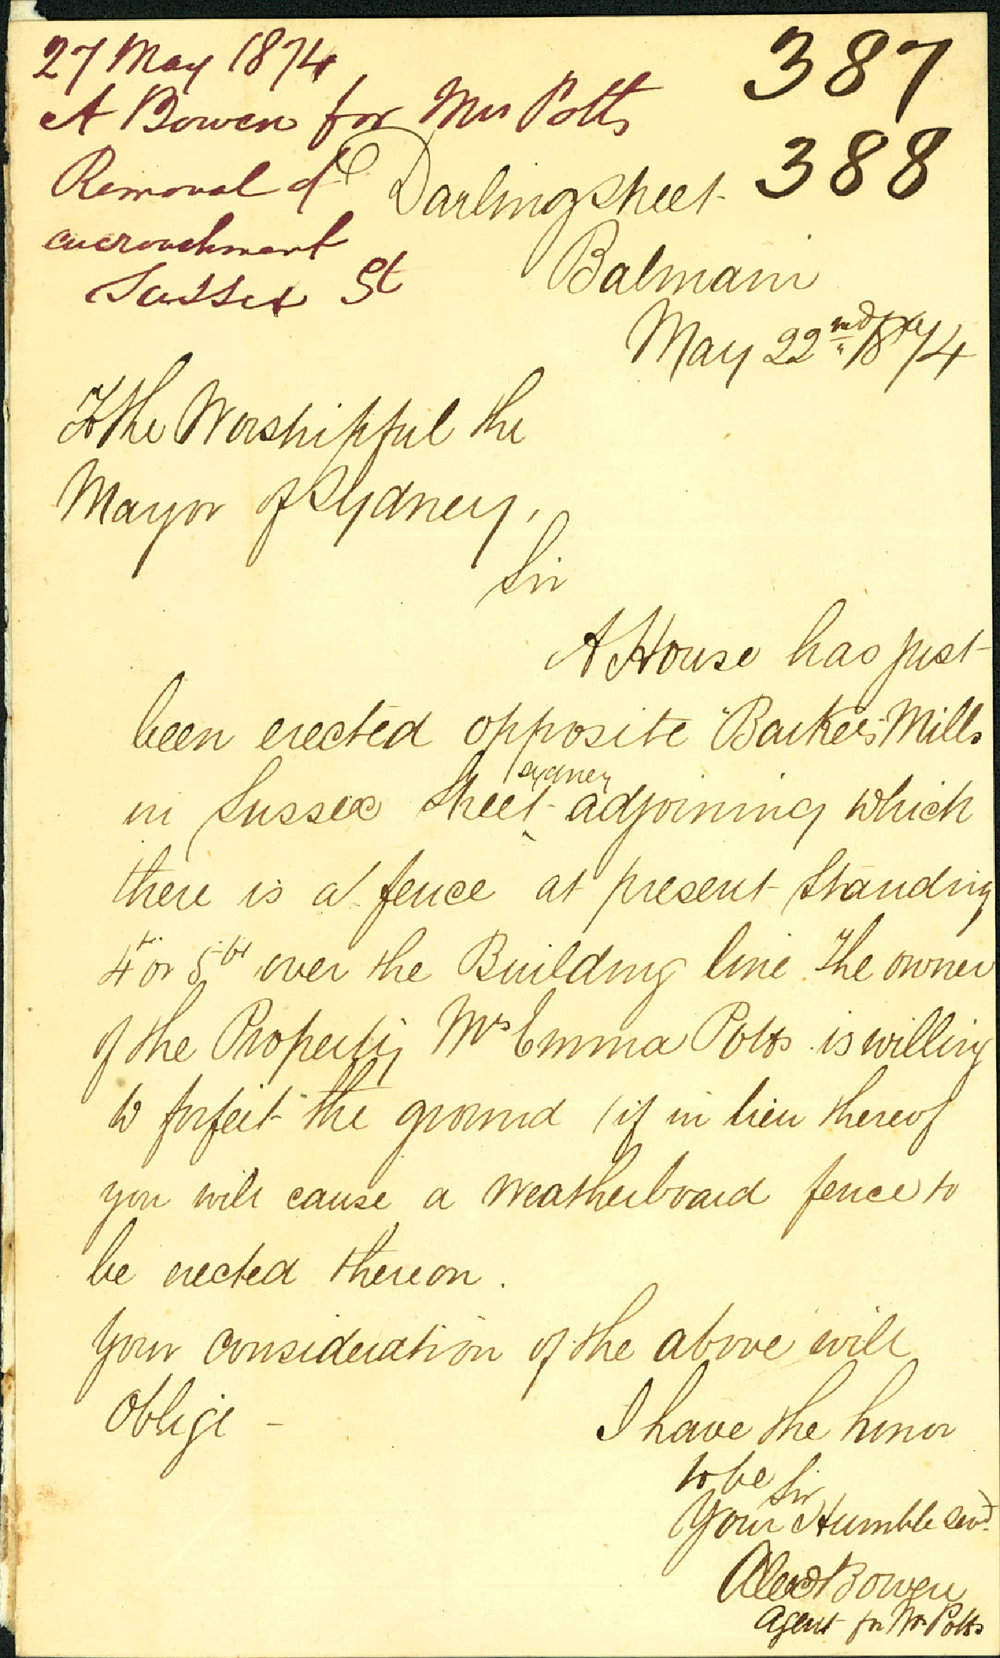 27 May 1874
A Bowen for Mrs Potts
Removal of
encroachment
Sussex St
387
388
Darling Street
Balmain
May 22nd 1874
To the Worshipful the
Mayor of Sydney,
Sir
A House has just
been erected opposite "Barker's Mills
in Sussex Street Sydney adjoining which
there is a fence at present standing
4 or 5 ft over the Building line. The owner
of the Property Mrs Emma Potts is willing
to forfeit the ground if in lieu thereof
you will cause a weatherboard fence to
be erected thereon.
Your consideration of the above will
Oblige -
I have the honor
to be Sir
Your Humble Servt
Alexd Bowen
Agent for Mrs Potts